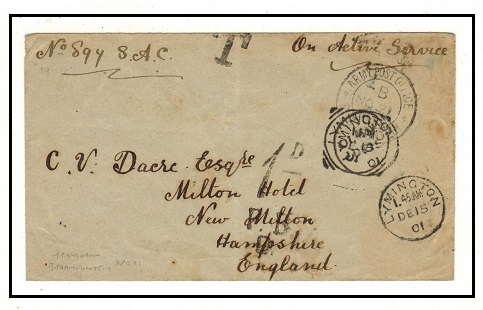 No 894 S.A.C.
T
On Active Service
ARMY POST OFFICE
B
NO
LYMINGTON
01
C. V. Dacre Esqre
Milton Hotel
New Milton
Hampshire
England.
1D
LYMINGTON
1.45 AM
DE 15
01